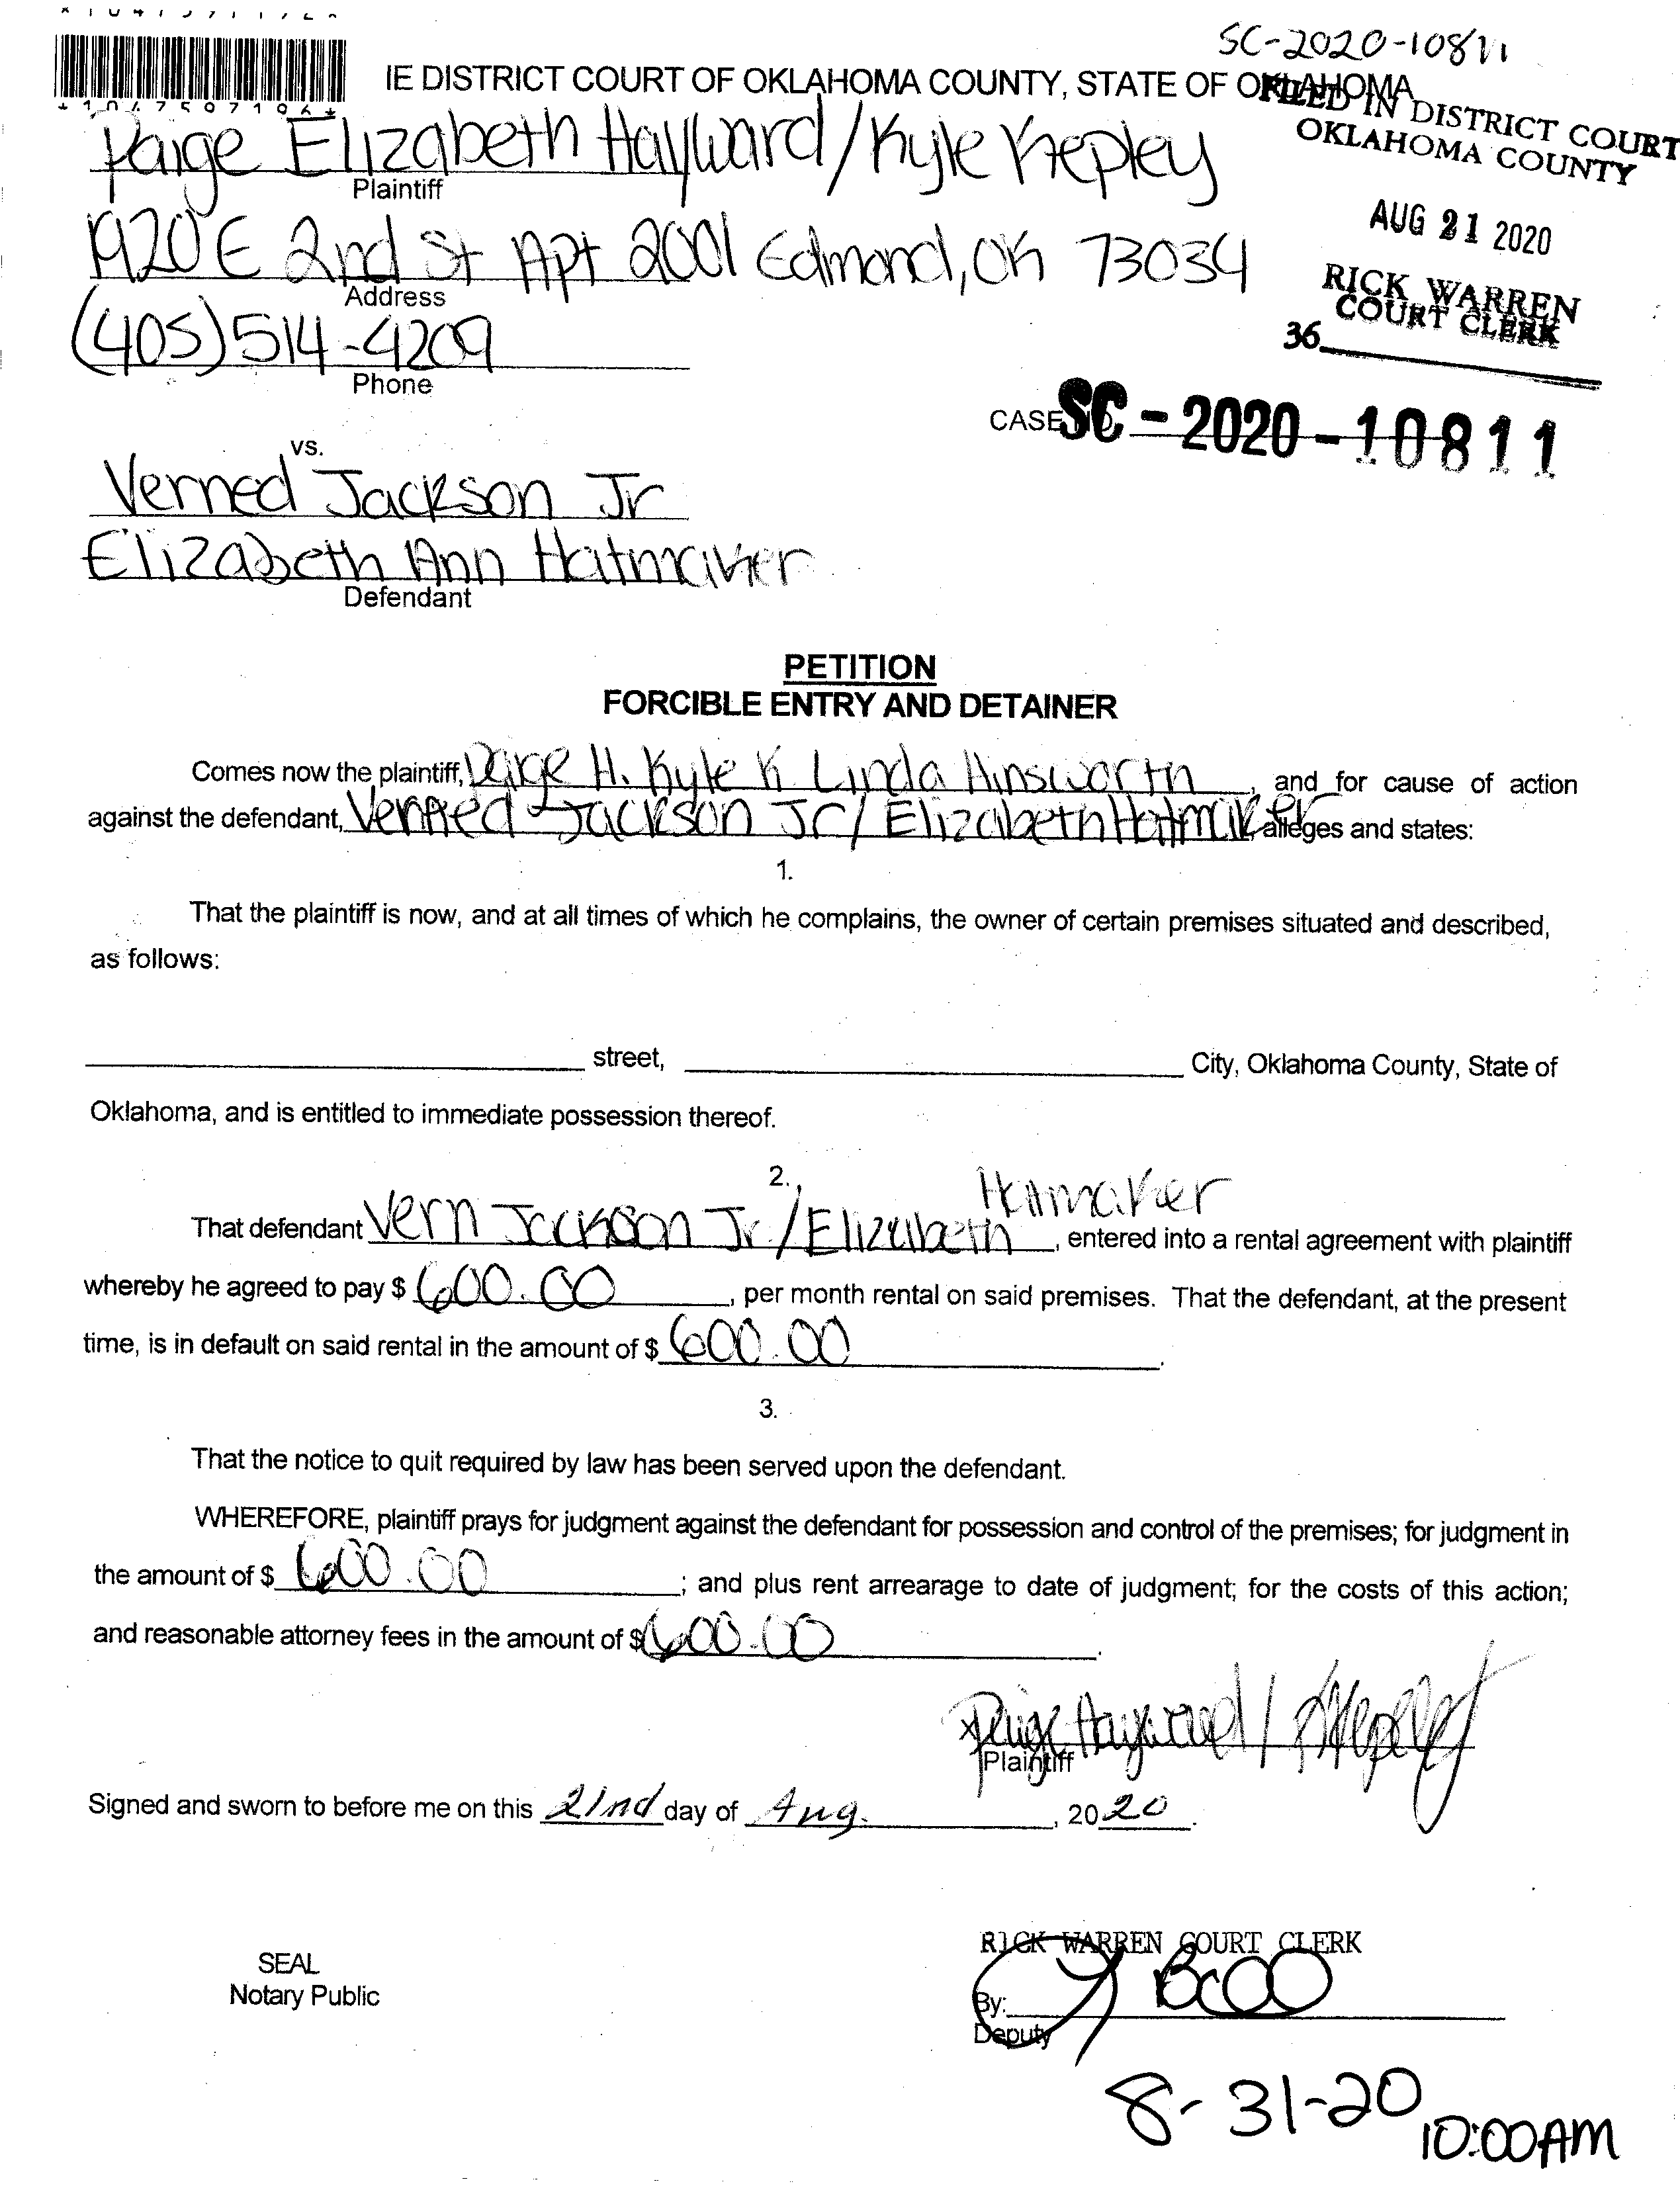 SC-2020-10811
IE DISTRICT COURT OF OKLAHOMA COUNTY, STATE OF OKLAHOMA
FILED IN DISTRICT COURT
OKLAHOMA COUNTY
Paige Elizabeth Hayward/Kyle Kepley
Plaintiff
AUG 21 2020
1920 E 2nd St Apt 2001 Edmond, OK 73034
Address
RICK WARREN
COURT CLERK
36
(405) 514-4209
Phone
CASE NO. SC-2020-10811
vs.
Verned Jackson Jr
Elizabeth Ann Hatmaker
Defendant
PETITION
FORCIBLE ENTRY AND DETAINER
Comes now the plaintiff, Paige H. Kyle K Linda Ainsworth, and for cause of action
against the defendant, Verned Jackson Jr/ Elizabeth Hatmaker, alleges and states:
1.
That the plaintiff is now, and at all times of which he complains, the owner of certain premises situated and described,
as follows:
street, City, Oklahoma County, State of
Oklahoma, and is entitled to immediate possession thereof.
2.
Hatmaker
That defendant Vern Jackson Jr./Elizabeth, entered into a rental agreement with plaintiff
whereby he agreed to pay $ 600.00, per month rental on said premises. That the defendant, at the present
time, is in default on said rental in the amount of $ 600.00.
3.
That the notice to quit required by law has been served upon the defendant.
WHEREFORE, plaintiff prays for judgment against the defendant for possession and control of the premises; for judgment in
the amount of $ 600.00; and plus rent arrearage to date of judgment; for the costs of this action;
and reasonable attorney fees in the amount of $ 600.00.
x Paige Hayward / K Kepley
Plaintiff
Signed and sworn to before me on this 21nd day of Aug., 2020.
RICK WARREN COURT CLERK
SEAL
Notary Public
By:
Deputy
8-31-20
10:00AM